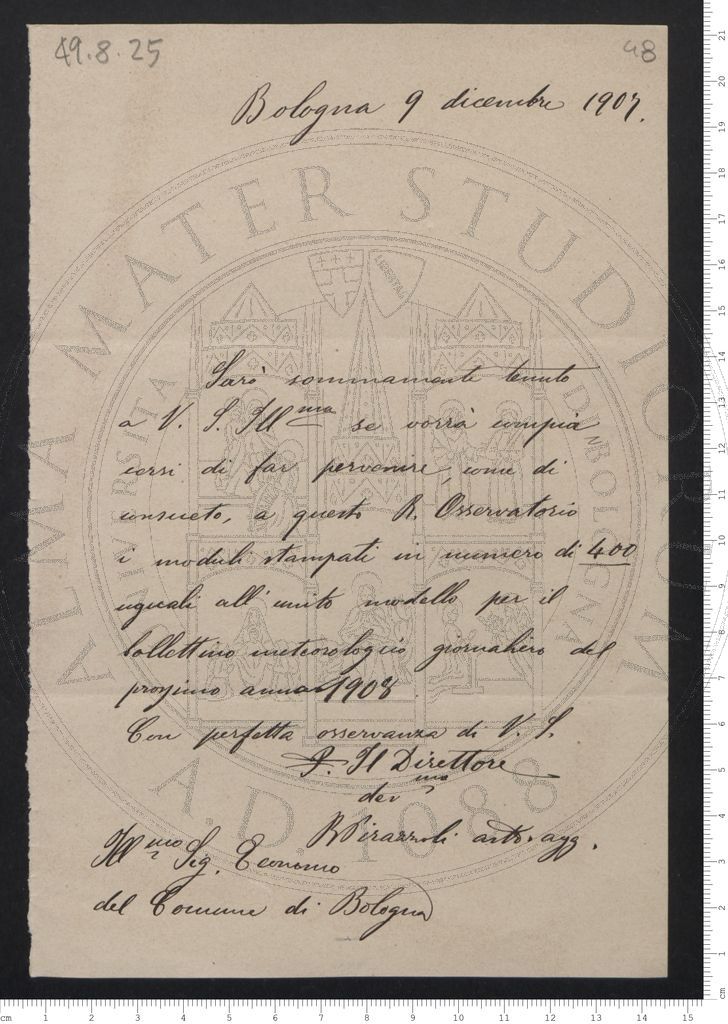 49.8.25
48
Bologna 9 dicembre 1907.
Sarò sommamente tenuto
a V. S. Ill ma se vorrà compia
cersi di far pervenire, come di
consueto, a questo R. Osservatorio
i moduli stampati in numero di 400
uguali all'unito modello per il
bollettino meteorologico giornaliero del
prossimo anno 1908
Con perfetta osservanza di V. S.
P. Il Direttore
dev mo
R Pirazzoli astr. agg.
Ill mo Sig. Economo
del Comune di Bologna
ALMA MATER STUDIORUM
UNIVERSITÀ DI BOLOGNA
LIBERTAS
A.D. 1088